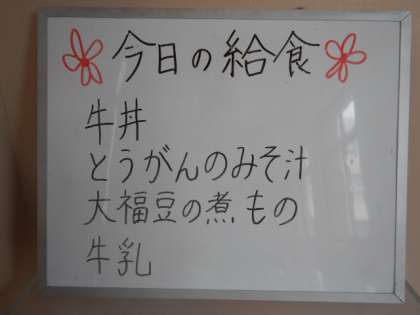 今日の給食
牛丼
とうがんのみそ汁
大福豆の煮もの
牛乳